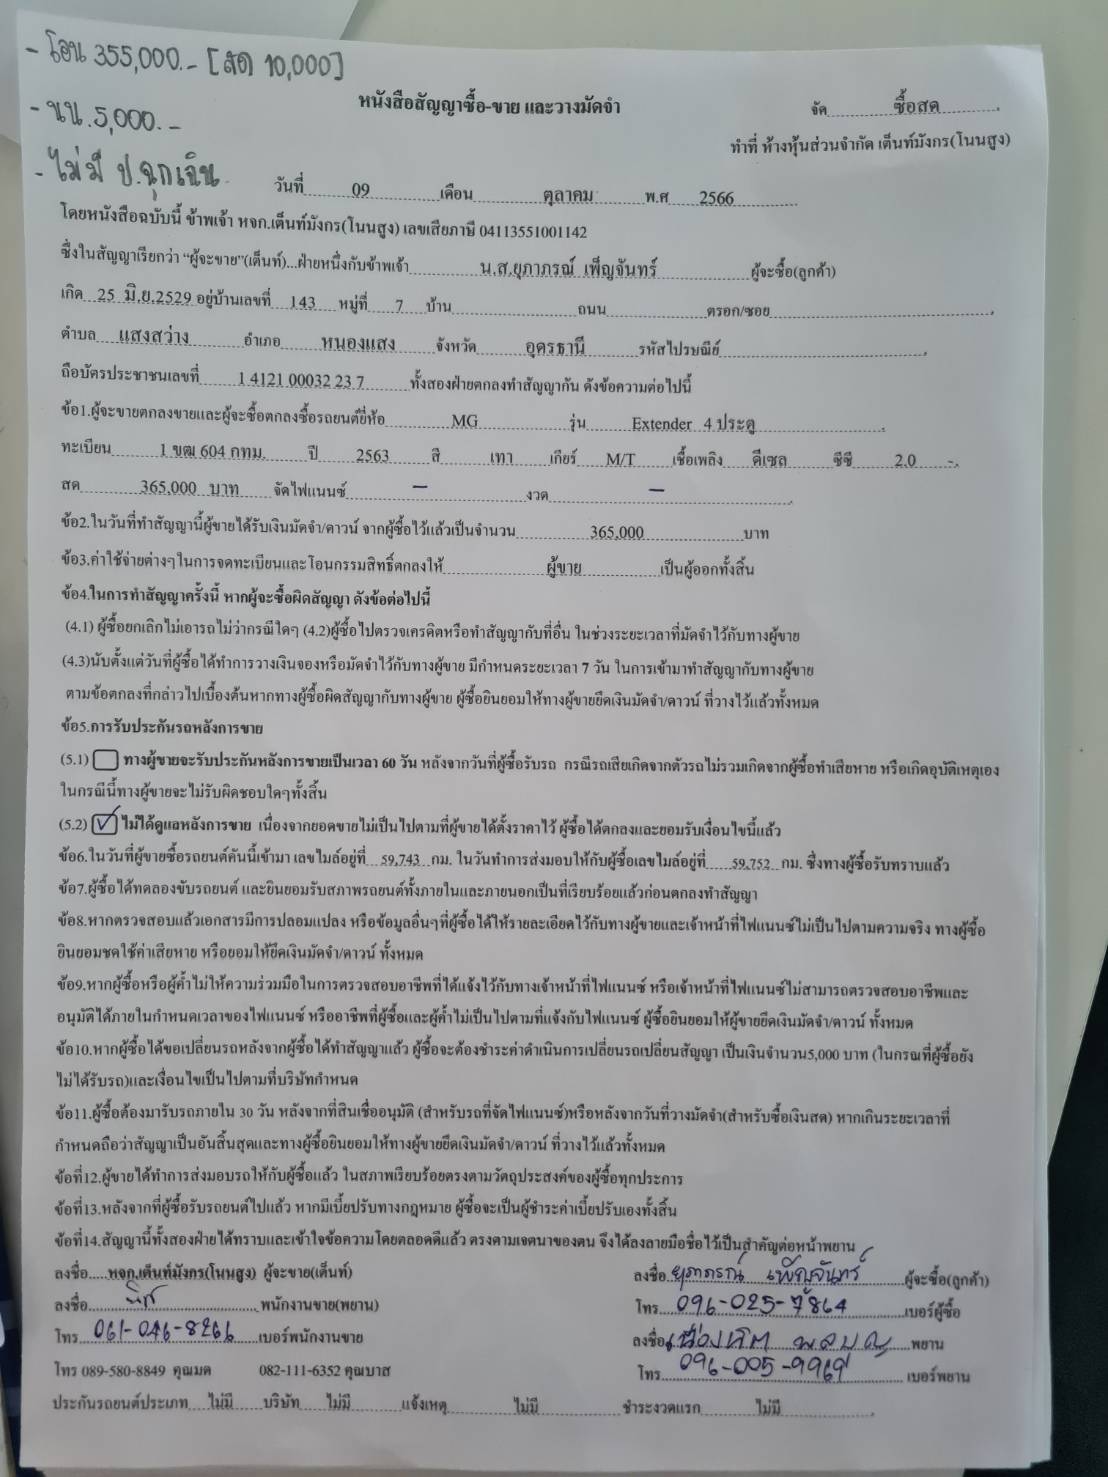 - โอน 355,000.- [สด 10,000]
- นน. 5,000.-
- ไม่มี ป.ฉุกเฉิน
หนังสือสัญญาซื้อ-ขาย และวางมัดจำ
จัด ซื้อสด
ทำที่ ห้างหุ้นส่วนจำกัด เต็นท์มังกร(โนนสูง)
วันที่ 09 เดือน ตุลาคม พ.ศ 2566
โดยหนังสือฉบับนี้ ข้าพเจ้า หจก.เต็นท์มังกร(โนนสูง) เลขเสียภาษี 04113551001142
ซึ่งในสัญญาเรียกว่า “ผู้จะขาย”(เต็นท์)...ฝ่ายหนึ่งกับข้าพเจ้า น.ส.ยุภาภรณ์ เพ็ญจันทร์ ผู้จะซื้อ(ลูกค้า)
เกิด 25 มิ.ย.2529 อยู่บ้านเลขที่ 143 หมู่ที่ 7 บ้าน ถนน ตรอก/ซอย
ตำบล แสงสว่าง อำเภอ หนองแสง จังหวัด อุดรธานี รหัสไปรษณีย์
ถือบัตรประชาชนเลขที่ 1 4121 00032 23 7 ทั้งสองฝ่ายตกลงทำสัญญากัน ดังข้อความต่อไปนี้
ข้อ1.ผู้จะขายตกลงขายและผู้จะซื้อตกลงซื้อรถยนต์ยี่ห้อ MG รุ่น Extender 4 ประตู
ทะเบียน 1 ขฒ 604 กทม. ปี 2563 สี เทา เกียร์ M/T เชื้อเพลิง ดีเซล ซีซี 2.0 -.
สด 365,000 บาท จัดไฟแนนซ์ – งวด –
ข้อ2.ในวันที่ทำสัญญานี้ผู้ขายได้รับเงินมัดจำ/ดาวน์ จากผู้ซื้อไว้แล้วเป็นจำนวน 365,000 บาท
ข้อ3.ค่าใช้จ่ายต่างๆในการจดทะเบียนและโอนกรรมสิทธิ์ตกลงให้ ผู้ขาย เป็นผู้ออกทั้งสิ้น
ข้อ4.ในการทำสัญญาครั้งนี้ หากผู้จะซื้อผิดสัญญา ดังข้อต่อไปนี้
(4.1) ผู้ซื้อยกเลิกไม่เอารถไม่ว่ากรณีใดๆ (4.2)ผู้ซื้อไปตรวจเครดิตหรือทำสัญญากับที่อื่น ในช่วงระยะเวลาที่มัดจำไว้กับทางผู้ขาย
(4.3)นับตั้งแต่วันที่ผู้ซื้อได้ทำการวางเงินจองหรือมัดจำไว้กับทางผู้ขาย มีกำหนดระยะเวลา 7 วัน ในการเข้ามาทำสัญญากับทางผู้ขาย
ตามข้อตกลงที่กล่าวไปเบื้องต้นหากทางผู้ซื้อผิดสัญญากับทางผู้ขาย ผู้ซื้อยินยอมให้ทางผู้ขายยึดเงินมัดจำ/ดาวน์ ที่วางไว้แล้วทั้งหมด
ข้อ5.การรับประกันรถหลังการขาย
(5.1) ทางผู้ขายจะรับประกันหลังการขายเป็นเวลา 60 วัน หลังจากวันที่ผู้ซื้อรับรถ กรณีรถเสียเกิดจากตัวรถไม่รวมเกิดจากผู้ซื้อทำเสียหาย หรือเกิดอุบัติเหตุเอง
ในกรณีนี้ทางผู้ขายจะไม่รับผิดชอบใดๆทั้งสิ้น
(5.2) ✓ ไม่ได้ดูแลหลังการขาย เนื่องจากยอดขายไม่เป็นไปตามที่ผู้ขายได้ตั้งราคาไว้ ผู้ซื้อได้ตกลงและยอมรับเงื่อนไขนี้แล้ว
ข้อ6.ในวันที่ผู้ขายซื้อรถยนต์คันนี้เข้ามา เลขไมล์อยู่ที่ 59,743 กม. ในวันทำการส่งมอบให้กับผู้ซื้อเลขไมล์อยู่ที่ 59,752 กม. ซึ่งทางผู้ซื้อรับทราบแล้ว
ข้อ7.ผู้ซื้อได้ทดลองขับรถยนต์ และยินยอมรับสภาพรถยนต์ทั้งภายในและภายนอกเป็นที่เรียบร้อยแล้วก่อนตกลงทำสัญญา
ข้อ8.หากตรวจสอบแล้วเอกสารมีการปลอมแปลง หรือข้อมูลอื่นๆที่ผู้ซื้อได้ให้รายละเอียดไว้กับทางผู้ขายและเจ้าหน้าที่ไฟแนนซ์ไม่เป็นไปตามความจริง ทางผู้ซื้อ
ยินยอมชดใช้ค่าเสียหาย หรือยอมให้ยึดเงินมัดจำ/ดาวน์ ทั้งหมด
ข้อ9.หากผู้ซื้อหรือผู้ค้ำไม่ให้ความร่วมมือในการตรวจสอบอาชีพที่ได้แจ้งไว้กับทางเจ้าหน้าที่ไฟแนนซ์ หรือเจ้าหน้าที่ไฟแนนซ์ไม่สามารถตรวจสอบอาชีพและ
อนุมัติได้ภายในกำหนดเวลาของไฟแนนซ์ หรืออาชีพที่ผู้ซื้อและผู้ค้ำไม่เป็นไปตามที่แจ้งกับไฟแนนซ์ ผู้ซื้อยินยอมให้ผู้ขายยึดเงินมัดจำ/ดาวน์ ทั้งหมด
ข้อ10.หากผู้ซื้อได้ขอเปลี่ยนรถหลังจากผู้ซื้อได้ทำสัญญาแล้ว ผู้ซื้อจะต้องชำระค่าดำเนินการเปลี่ยนรถเปลี่ยนสัญญา เป็นเงินจำนวน5,000 บาท (ในกรณที่ผู้ซื้อยัง
ไม่ได้รับรถ)และเงื่อนไขเป็นไปตามที่บริษัทกำหนด
ข้อ11.ผู้ซื้อต้องมารับรถภายใน 30 วัน หลังจากที่สินเชื่ออนุมัติ (สำหรับรถที่จัดไฟแนนซ์)หรือหลังจากวันที่วางมัดจำ(สำหรับซื้อเงินสด) หากเกินระยะเวลาที่
กำหนดถือว่าสัญญาเป็นอันสิ้นสุดและทางผู้ซื้อยินยอมให้ทางผู้ขายยึดเงินมัดจำ/ดาวน์ ที่วางไว้แล้วทั้งหมด
ข้อที่12.ผู้ขายได้ทำการส่งมอบรถให้กับผู้ซื้อแล้ว ในสภาพเรียบร้อยตรงตามวัตถุประสงค์ของผู้ซื้อทุกประการ
ข้อที่13.หลังจากที่ผู้ซื้อรับรถยนต์ไปแล้ว หากมีเบี้ยปรับทางกฎหมาย ผู้ซื้อจะเป็นผู้ชำระค่าเบี้ยปรับเองทั้งสิ้น
ข้อที่14.สัญญานี้ทั้งสองฝ่ายได้ทราบและเข้าใจข้อความโดยตลอดดีแล้ว ตรงตามเจตนาของตน จึงได้ลงลายมือชื่อไว้เป็นสำคัญต่อหน้าพยาน
ลงชื่อ หจก.เต็นท์มังกร(โนนสูง) ผู้จะขาย(เต็นท์) ลงชื่อ ยุภาภรณ์ เพ็ญจันทร์ ผู้จะซื้อ(ลูกค้า)
ลงชื่อ พนักงานขาย(พยาน) โทร 096-025-7864 เบอร์ผู้ซื้อ
โทร 061-046-8266 เบอร์พนักงานขาย ลงชื่อ พยาน
โทร 089-580-8849 คุณมด 082-111-6352 คุณบาส โทร 096-005-9969 เบอร์พยาน
ประกันรถยนต์ประเภท ไม่มี บริษัท ไม่มี แจ้งเหตุ ไม่มี ชำระงวดแรก ไม่มี